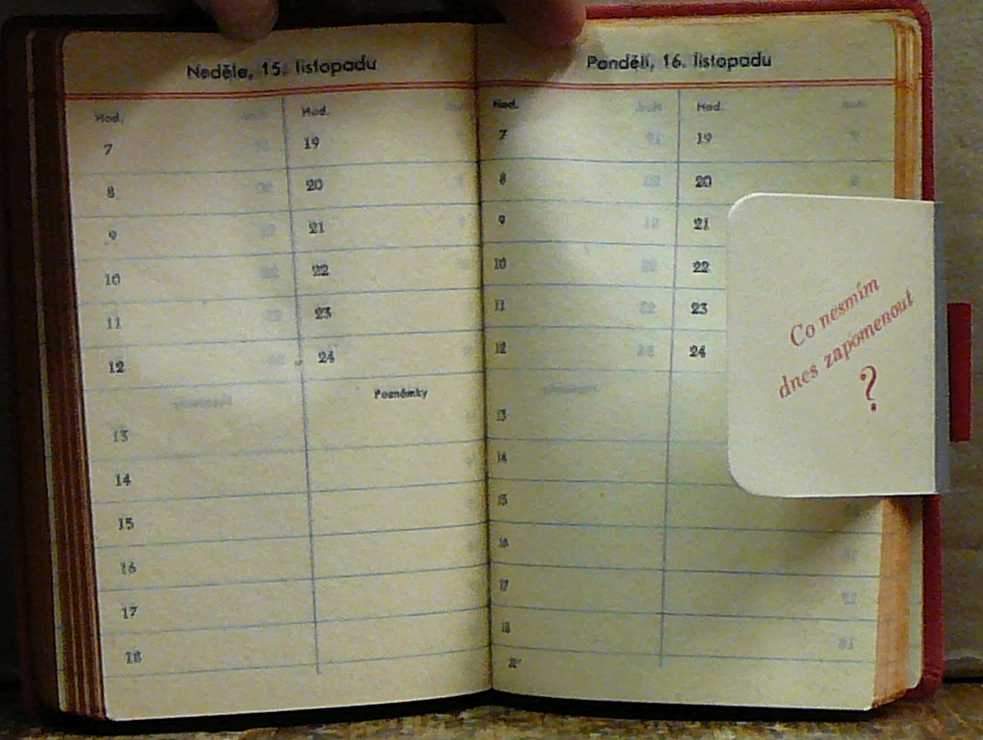 Neděle, 15. listopadu
Hod.
7
8
9
10
11
12
13
14
15
16
17
18
Hod.
19
20
21
22
23
24
Poznámky
Pondělí, 16. listopadu
Hod.
7
8
9
10
11
12
13
14
15
16
17
18
Hod.
19
20
21
22
23
24
Co nesmím
dnes zapomenout
?